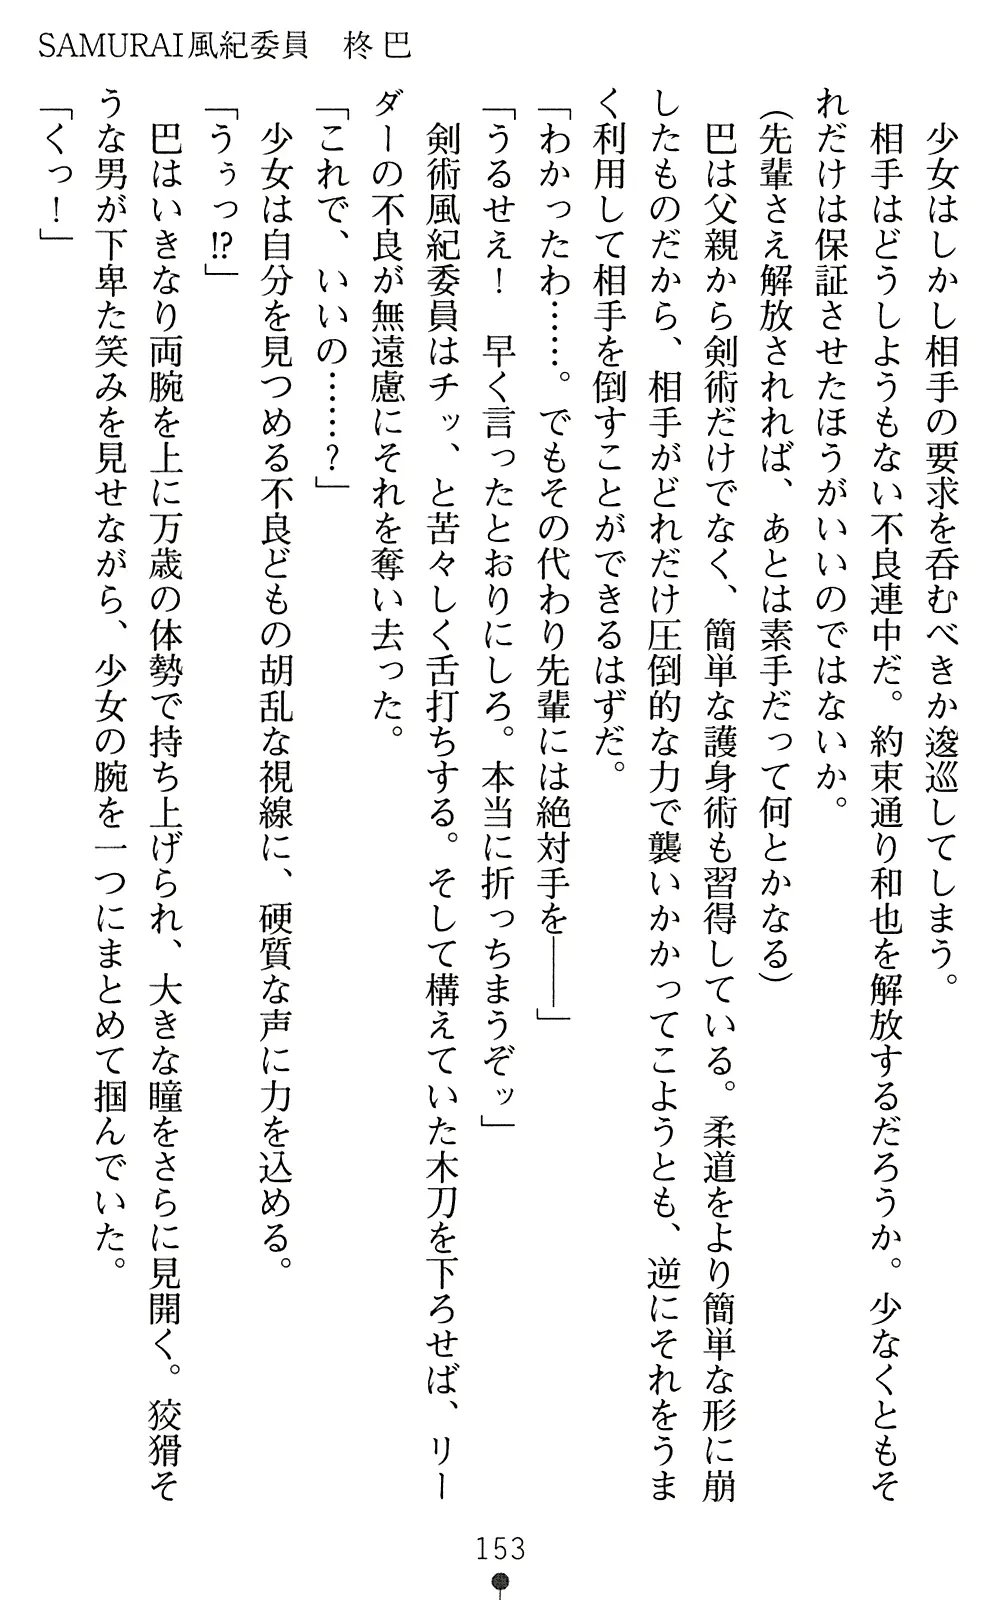 SAMURAI風紀委員　柊 巴
少女はしかし相手の要求を呑むべきか逡巡してしまう。
相手はどうしようもない不良連中だ。約束通り和也を解放するだろうか。少なくともそ
れだけは保証させたほうがいいのではないか。
(先輩さえ解放されれば、あとは素手だって何とかなる)
巴は父親から剣術だけでなく、簡単な護身術も習得している。柔道をより簡単な形に崩
したものだから、相手がどれだけ圧倒的な力で襲いかかってこようとも、逆にそれをうま
く利用して相手を倒すことができるはずだ。
「わかったわ……。でもその代わり先輩には絶対手を――」
「うるせえ！　早く言ったとおりにしろ。本当に折っちまうぞッ」
剣術風紀委員はチッ、と苦々しく舌打ちする。そして構えていた木刀を下ろせば、リー
ダーの不良が無遠慮にそれを奪い去った。
「これで、いいの……？」
少女は自分を見つめる不良どもの胡乱な視線に、硬質な声に力を込める。
「うぅっ!?」
巴はいきなり両腕を上に万歳の体勢で持ち上げられ、大きな瞳をさらに見開く。狡猾そ
うな男が下卑た笑みを見せながら、少女の腕を一つにまとめて掴んでいた。
「くっ！」
153